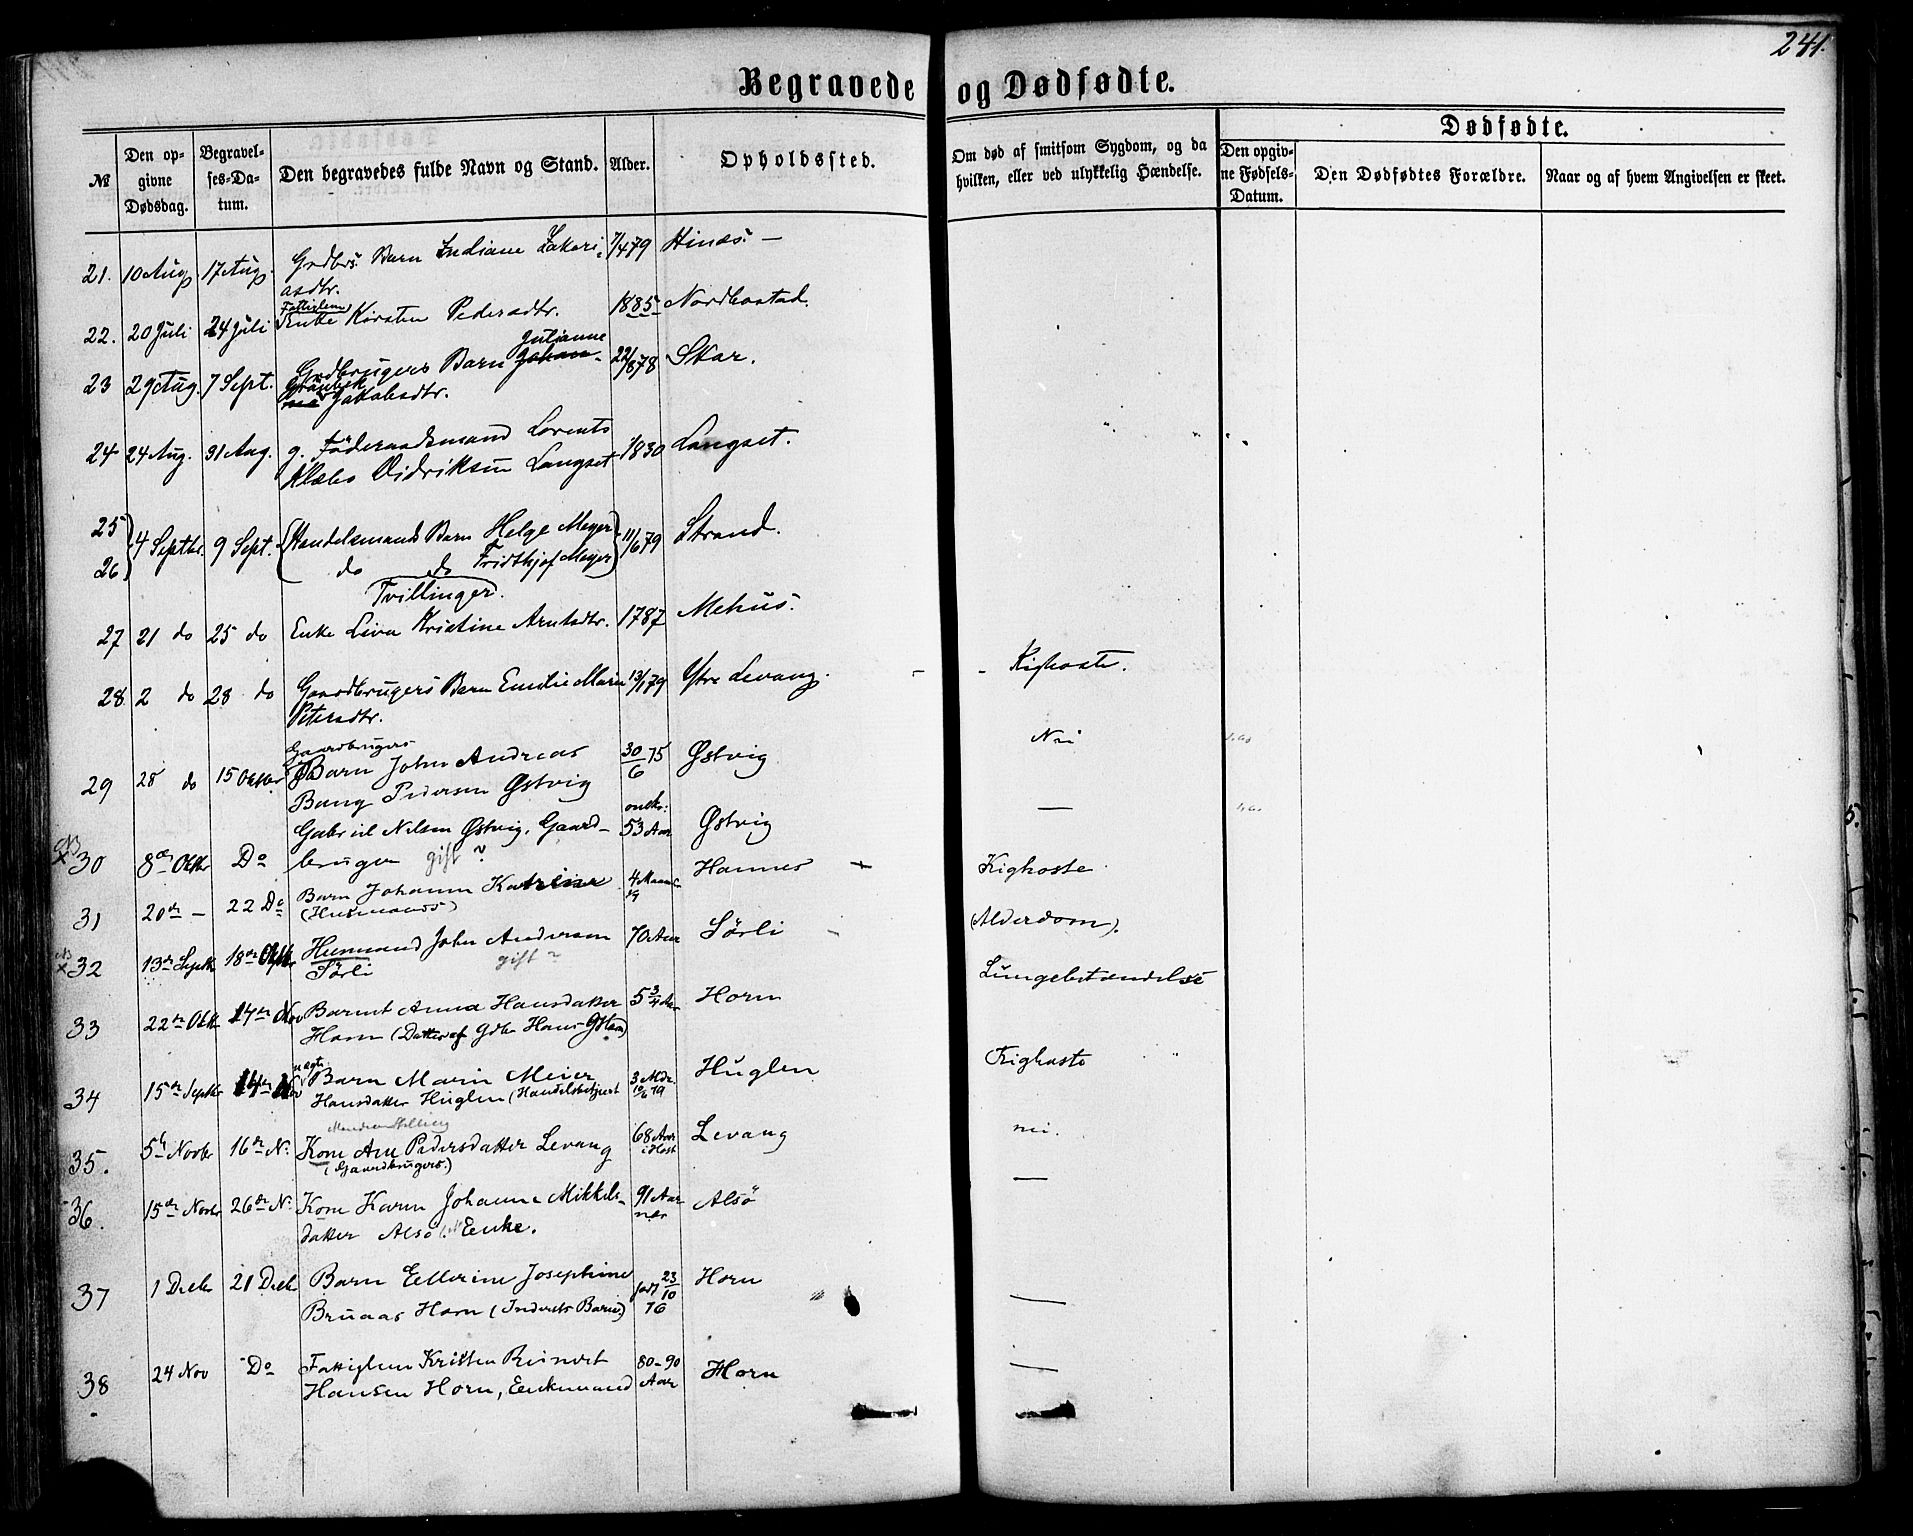 241.
Begravede og Dødfødte.
Dødfødte.
№ Den opgivne Dødsdag. Begravelses-Datum. Den begravedes fulde Navn og Stand. Alder. Opholdssted. Om død af smitsom Sygdom, og da hvilken, eller ved ulykkelig Hændelse. Den opgivne Fødsels-Datum. Den Dødfødtes Forældre. Naar og af hvem Angivelsen er skeet.
21. 10 Aug 17 Aug. Grdbrs. Barn Indiane Zakari- 7/4 79 Hinæs. —
asdtr.
Fattiglem
22. 20 Juli 24 Juli Enke Kirsten Pedersdtr. 1885 Nordbostad.
Julianne
23 29 Aug. 7 Sept. Grdbrugers Barn Johan- 22/8 78 Skar.
Jakobsdtr.
24 24 Aug. 31 Aug. g. Föderaadsmand Lorents 1830 Langset.
Klæbo Didriksen Langset
25 4 Septbr. 9 Sept. Handelsmands Barn Helge Meyer 11/6 79 Strand.
26 do do Fridthjof Meyer
Tvillinger.
27 21 do 25 do Enke Liva Kristine Arntsdtr. 1787 Mehus.
28. 2 do 28 do Gaardbrugers Barn Emilie Marie 13/1 79 Ytre Levang. - - Kighoste.
Petersdtr.
Gaardbrugers
29 28 do 15 Oktbr Barn John Andreas 30/6 75 Østvig Nei
Bang Pedersen Østvig
Gabriel Nilsen Østvig, Gaard- 53 Aar Østvig —
NB
× 30 8de Oktbr Do bruger gift ?
31 20de — 22 Do Barn Johanna Katrine 4 Hannes Kighoste
(Husmands)
NB
× 32 13de Septbr 18de Oktbr Husmand John Andersen 70 Aar Sørli (Alderdom).
Sørli gift ?
33 22de Oktbr 17de Nov Barnet Anna Hansdatter 5 3/4 Aar Horn Lungebetændelse
Horn (Datter af Gdbr Hans Horn)
uægte
34 15de Septbr Nov Barn Marin Meier 3 Mdr. Huglen Kighoste
Hansdatter Huglen (Handelsbetjent 10/6 79
35. 5te Novbr 16de N. Kone Ane Pedersdatter Levang 68 Aar i Høst Levang nei.
(Gaardbrugers.)
36. 15de Novbr 26de N. Kone Karen Johanna Mikkels- 91 Aar nær Alsø —
datter Alsø Enke.
37 1 Decbr 21 Decbr Barn Ellerine Josephine født 23/10 76 Horn
Bruaas Horn (Indersts Barn) —
38 24 Nov Do Fattiglem Kristen Reinert 80-90 Aar Horn —
Hansen Horn, Enkemand